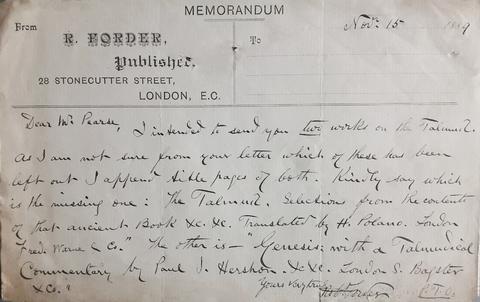 MEMORANDUM
Novr. 15 1889
From
To
R. FORDER,
Publisher,
28 STONECUTTER STREET,
LONDON, E.C.
Dear Mr Pearse,
I intended to send you two works on the Talmud.
As I am not sure from your letter which of these has been
left out I append title pages of both. Kindly say which
is the missing one: The Talmud. Selections from the contents
of that ancient Book &c. &c. Translated by H. Polano. London
Fredk. Warne & Co." The other is - "Genesis; with a Talmudical
Commentary by Paul I. Hershon. &c &c. London S. Bagster
& Co."
Yours very truly
R. Forder